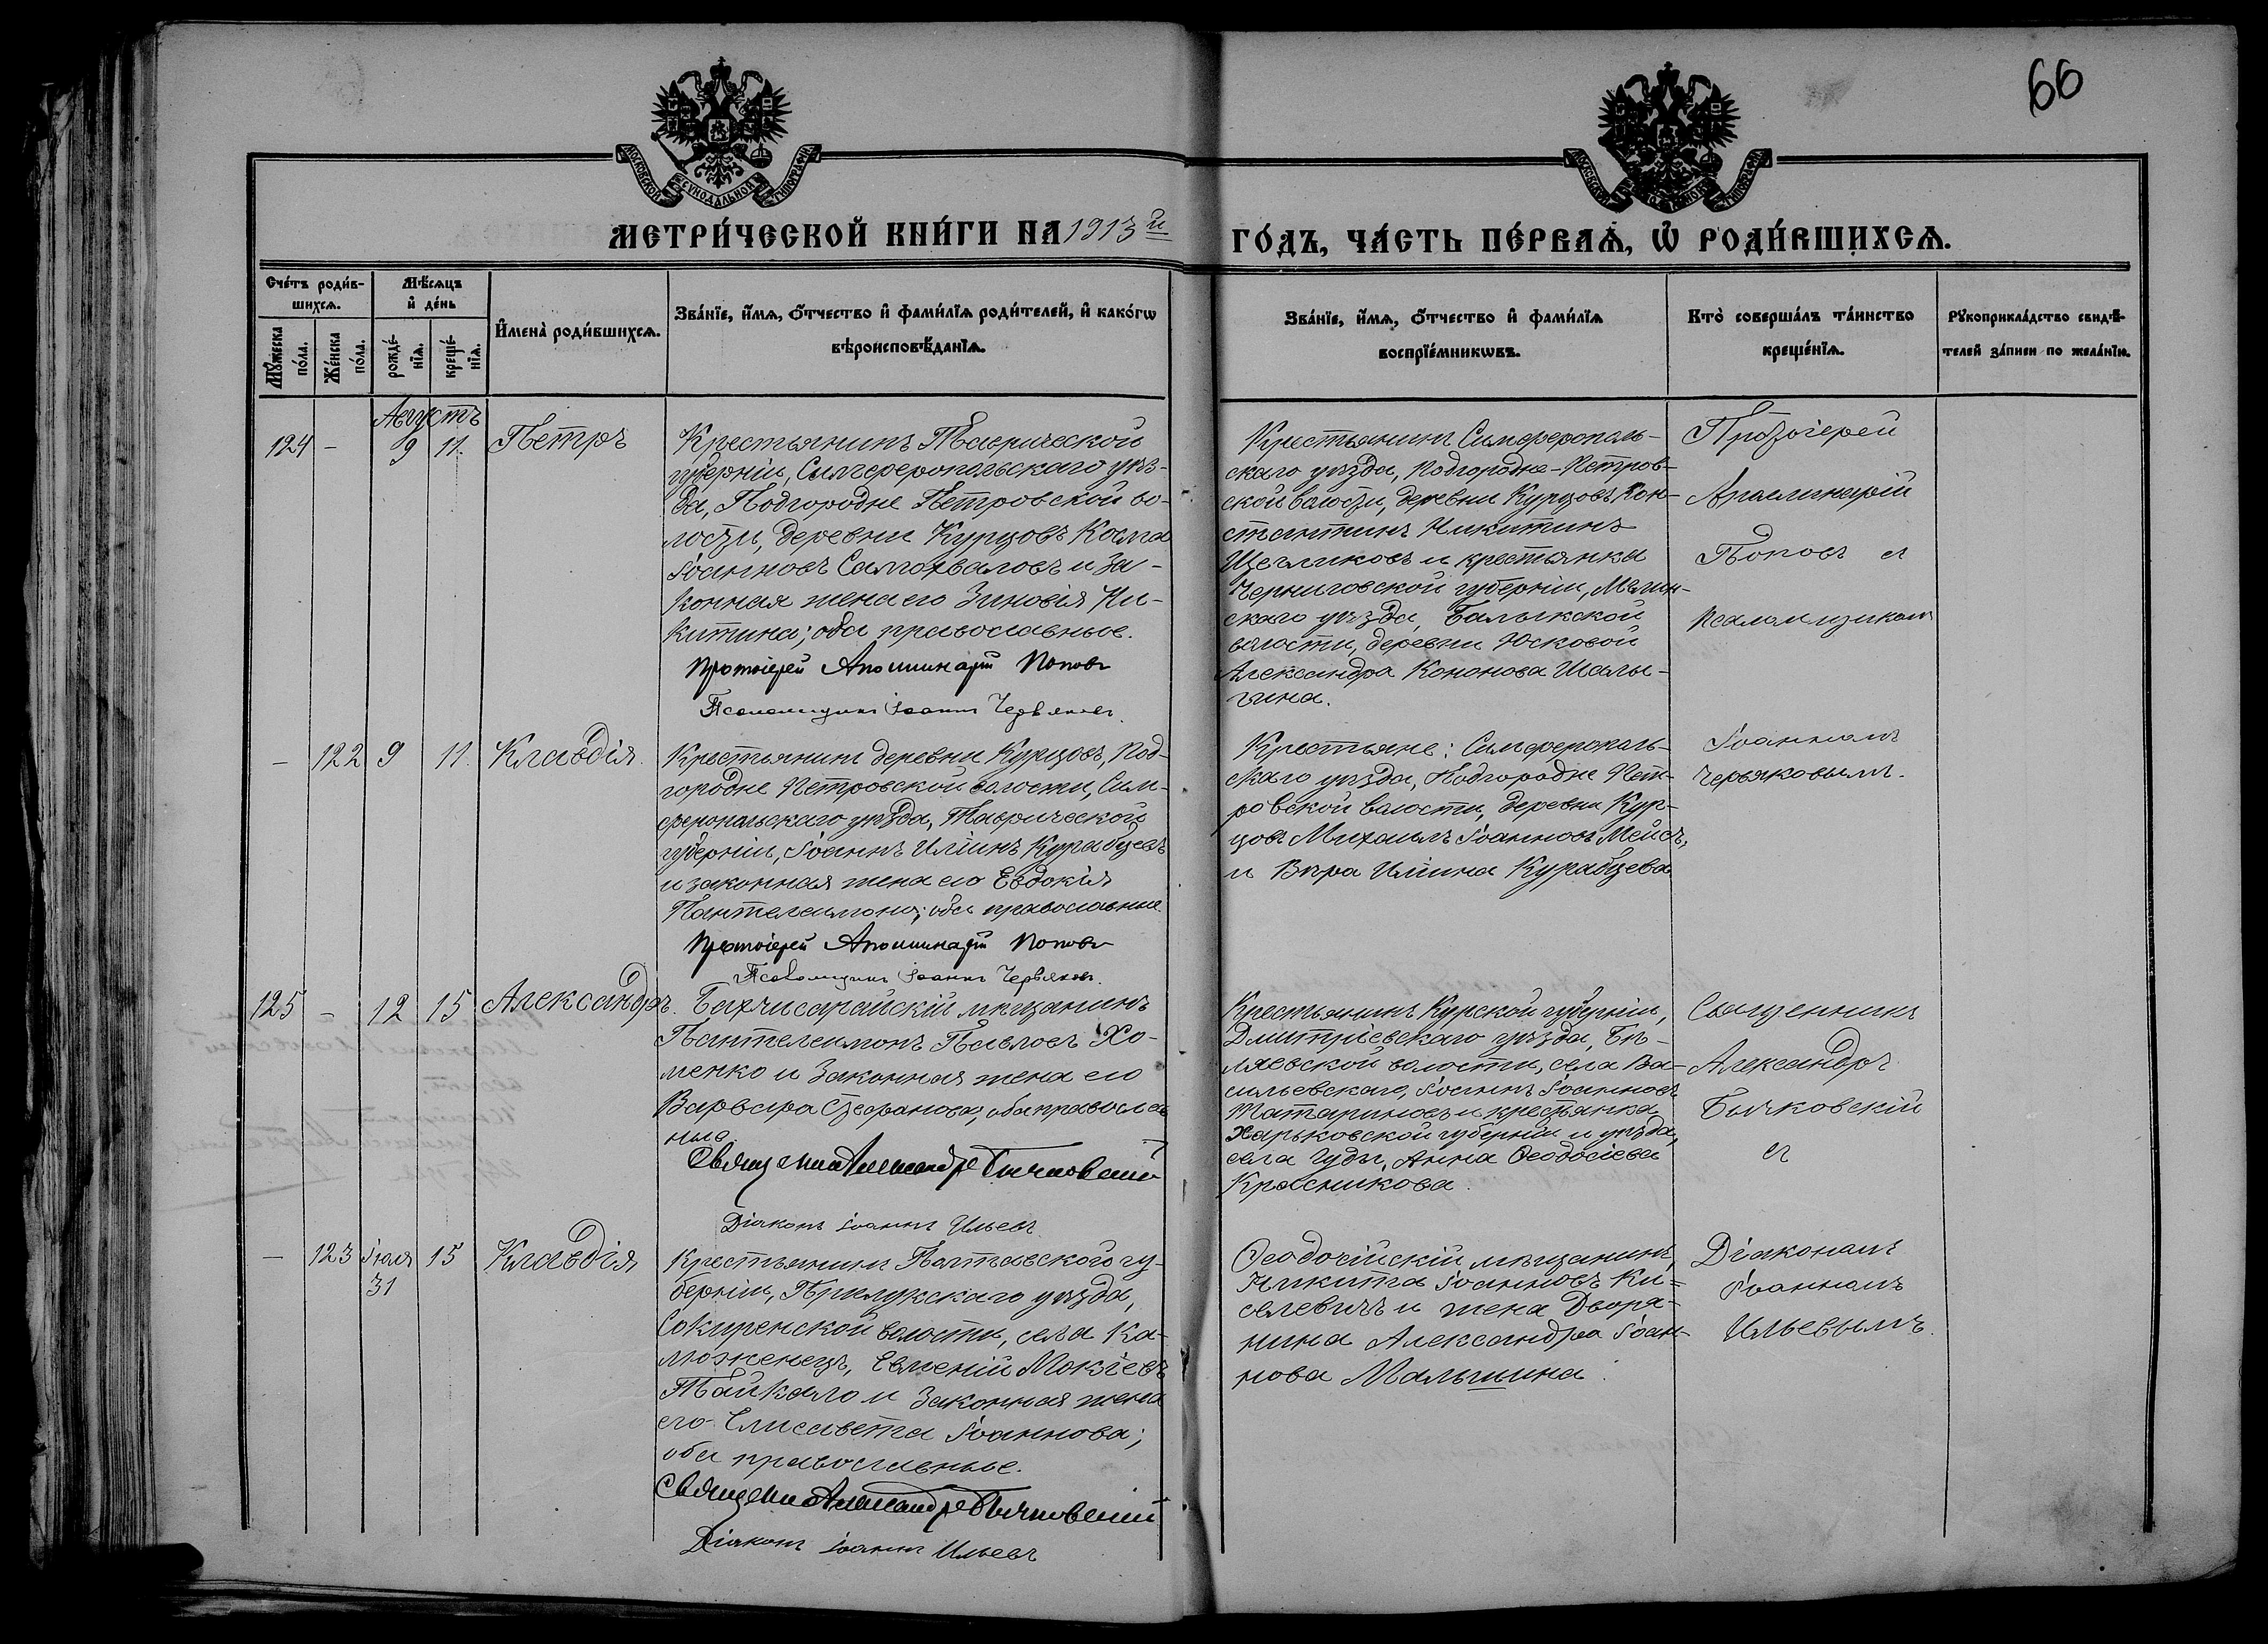 66
МОСКОВСКОЙ СУНОДАЛЬНОЙ ТИПОГРАФІИ
МЕТРИ́ЧЕСКОЙ КНИ́ГИ НА 1913 й
ГО́ДЪ, ЧА́СТЬ ПЕ́РВАѦ, Ѡ҆ РОДИ́ВШИХСѦ.
Сче́тъ роди́в-
шихсѧ.
Мꙋ́жеска
по́ла.
Же́нска
по́ла.
Мѣ́сѧцъ
и҆ де́нь
рожде́-
нїѧ.
креще́-
нїѧ.
И҆мена̀ роди́вшихсѧ.
Зва́нїе, и҆́мѧ, ѻ҆́тчество и҆ фами́лїѧ роди́телей, и҆ како́гѡ
вѣроисповѣ́данїѧ.
Зва́нїе, и҆́мѧ, ѻ҆́тчество и҆ фами́лїѧ
воспрїе́мникѡвъ.
Кто̀ соверша́лъ та́инство
креще́нїѧ.
Рꙋкоприкла́дство свидѣ́-
телей за́писи по жела́нїю.
Августъ
124 - 9 11. Петръ
Крестьянинъ Таврической
губерніи, Симферопольскаго уѣз-
да, Подгородне Петровской во-
лости, деревни Курцовъ Косма
Іоанновъ Самохваловъ и за-
конная жена его Зиновія Ни-
китина; оба православные.
Протоіерей Аполлинарій Поповъ
Псаломщикъ Іоаннъ Червяковъ.
Крестьянинъ Симферополь-
скаго уѣзда, Подгородне-Петров-
ской волости, деревни Курцовъ Кон-
стантинъ Никитинъ
Щегликовъ и крестьянка
Черниговской губерніи, Мглин-
скаго уѣзда, Балыкской
волости, деревни Юсковой
Александра Кононова Шалы-
гина.
Протоіерей
Аполлинарій
Поповъ съ
псаломщикомъ
- 122 9 11. Клавдія.
Крестьянинъ деревни Курцовъ, Под-
городне Петровской волости, Сим-
феропольскаго уѣзда, Таврической
губерніи, Іоаннъ Иліинъ Курабцевъ
и законная жена его Евдокія
Пантелеимона; оба православные.
Протоіерей Аполлинарій Поповъ
Псаломщикъ Іоаннъ Червяковъ.
Крестьяне: Симферополь-
скаго уѣзда, Подгородне Пет-
ровской волости, деревни Кур-
цовъ Михаилъ Іоанновъ Мейсъ,
и Вѣра Иліина Курабцева
Іоанномъ
Червяковымъ.
125 - 12 15 Александръ.
Бахчисарайскій мѣщанинъ
Пантелеимонъ Павловъ Хо-
менко и законная жена его
Варвара Стефанова, оба православ-
ные
Священникъ Александръ Бычковскій
Діаконъ Іоаннъ Ильевъ
Крестьянинъ Курской губерніи,
Дмитріевскаго уѣзда, Бѣ-
ляевской волости, села Ва-
сильевскаго, Іоаннъ Іоанновъ
Татариновъ и крестьянка
Харьковской губерніи и уѣзда,
села Гуды, Анна Ѳеодосіева
Красникова.
Священникъ
Александръ
Бычковскій
съ
- 123 Іюля 31 15 Клавдія
Крестьянинъ Полтавской гу-
берніи, Прилукскаго уѣзда,
Сокиренской волости, села Ка-
моженецъ, Евменій Мокіевъ
Тайкало и законная жена
его Елисавета Іоаннова;
оба православные.
Священникъ Александръ Бычковскій
Діаконъ Іоаннъ Ильевъ
Ѳеодосійскій мѣщанинъ,
Никита Іоанновъ Ки-
селевичъ и жена Дворя-
нина Александра Іоан-
нова Мальшина.
Діакономъ
Іоанномъ
Ильевымъ.